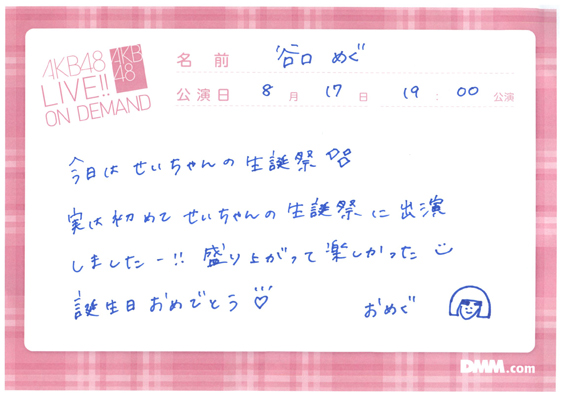 AKB48
LIVE!!
ON DEMAND
AKB
48
名前 谷口 めぐ
公演日 8月17日 19:00公演
今日は せいちゃんの 生誕祭
実は初めて せいちゃんの 生誕祭に出演
しましたー!! 盛り上がって楽しかった
誕生日おめでとう♡
おめぐ
DMM.com